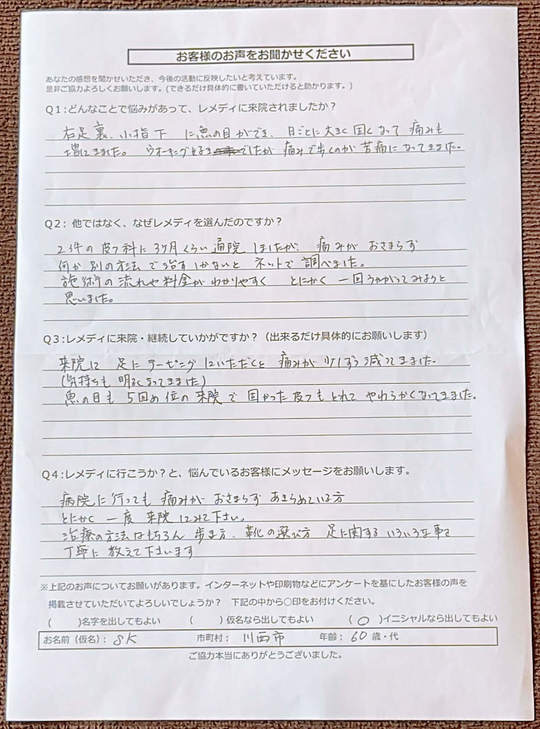 お客様のお声をお聞かせください
あなたの感想を聞かせいただき、今後の活動に反映したいと考えています。
是非ご協力よろしくお願いします。(できるだけ具体的に書いていただけると助かります。)
Q1:どんなことで悩みがあって、レメディに来院されましたか？
右足裏、小指下 に魚の目ができ、日ごとに大きく固くなって 痛みも
増してきました。ウオーキング でしたが 痛みで歩くのが苦痛になってきました。
Q2：他ではなく、なぜレメディを選んだのですか？
2件の皮フ科に3ケ月くらい通院しましたが、痛みが おさまらず
何か別の方法で治すしかないと ネットで調べました。
施術の流れや料金がわかりやすく とにかく一回うかがってみようと
思いました。
Q3：レメディに来院・継続していかがですか？（出来るだけ具体的にお願いします）
来院して 足にテーピングしていただくと 痛みが少しずつ減ってきました。
(気持ちも 明るくなってきました)
魚の目も 5回め位の来院で 固かった皮フもとれて やわらかくなってきました。
Q4：レメディに行こうか？と、悩んでいるお客様にメッセージをお願いします。
病院に行っても 痛みが おさまらず あきらめている方
とにかく 一度 来院してみて下さい。
治療の方法は勿ろん 歩き方、靴の選び方 足に関する いろいろな事を
丁寧に 教えて下さいます
※上記のお声についてお願いがあります。インターネットや印刷物などにアンケートを基にしたお客様の声を
掲載させていただいてよろしいでしょうか？ 下記の中から○印をお付けください。
( )名字を出してもよい ( )仮名なら出してもよい (○)イニシャルなら出してもよい
お名前（仮名）：SK 市町村：川西市 年齢：60 歳・代
ご協力本当にありがとうございました。